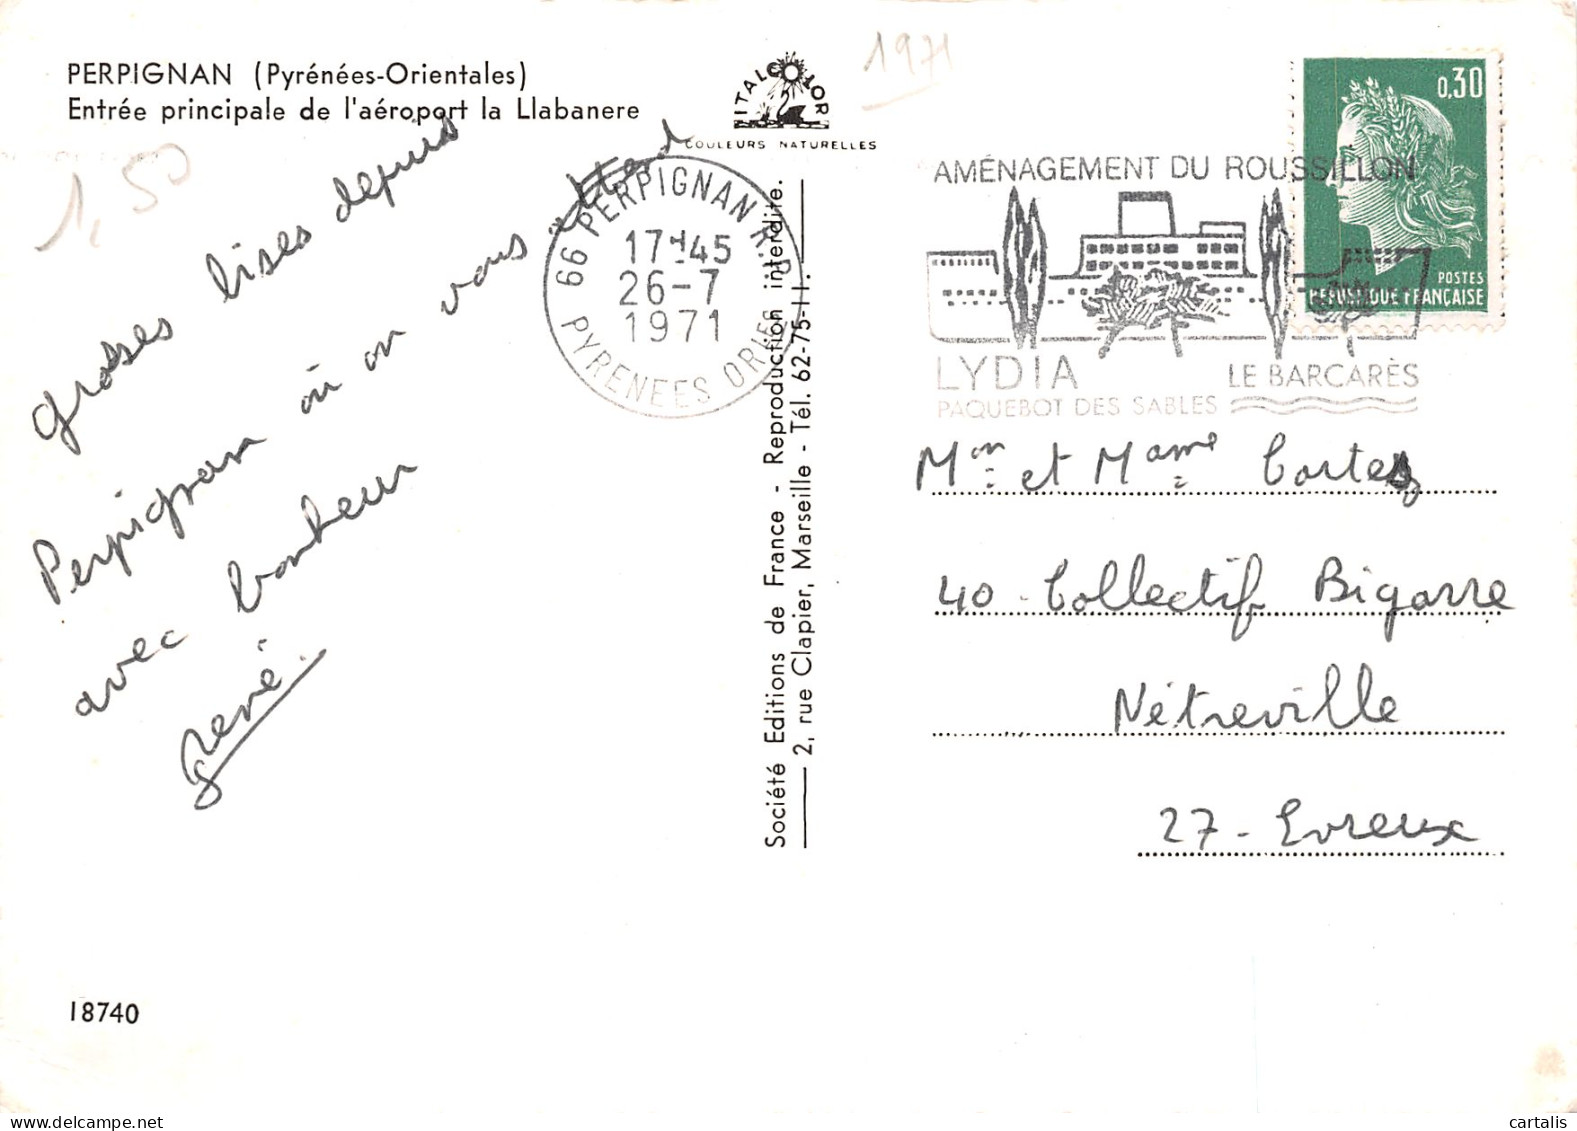 PERPIGNAN (Pyrénées-Orientales)
Entrée principale de l'aéroport la Llabanere
1,50
ITALCOLOR
COULEURS NATURELLES
1971
grosses bises depuis
Perpignan où on vous attend
avec bonheur
rené.
66 PERPIGNAN R.P.
17H45
26-7
1971
PYRENEES ORIES
Société Editions de France - Reproduction interdite.
2, rue Clapier, Marseille - Tél. 62-75-11.
AMÉNAGEMENT DU ROUSSILLON
LYDIA
PAQUEBOT DES SABLES
LE BARCARÈS
0,30
POSTES
REPUBLIQUE FRANÇAISE
Mon et Mame Cortes
40 - Collectif Bigarre
Nétreville
27 - Evreux
18740
cartalis